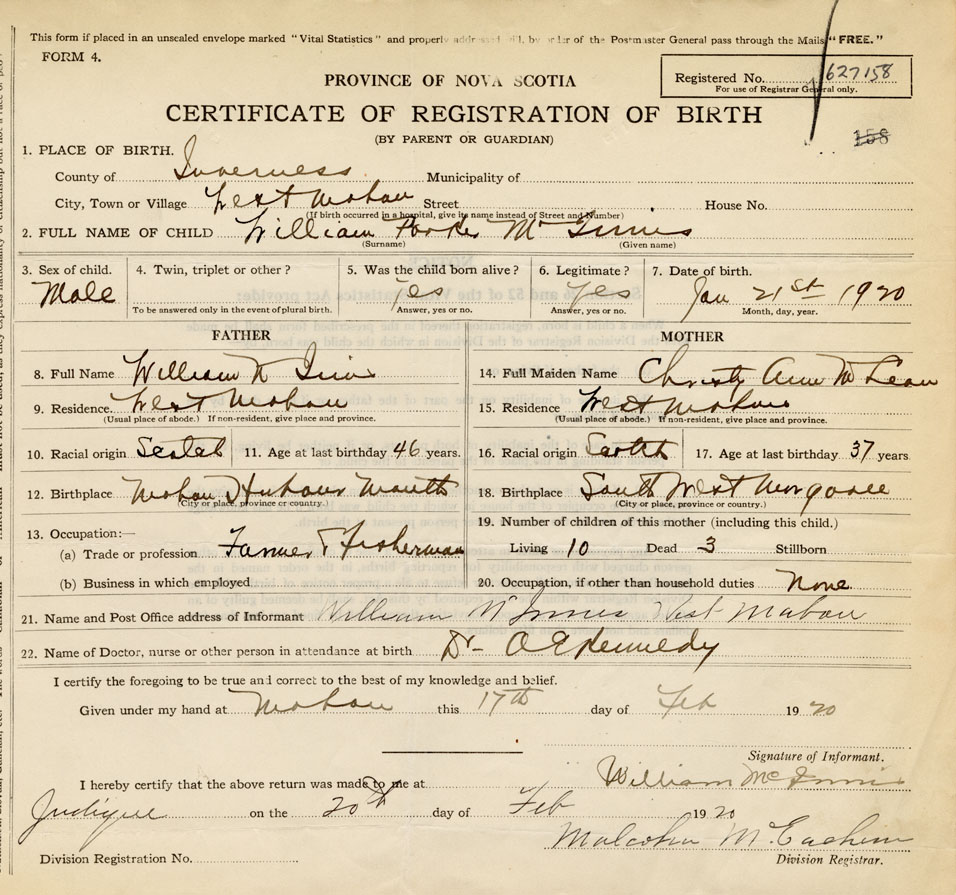 This form if placed in an unsealed envelope marked "Vital Statistics" and properly addressed will, by order of the Postmaster General pass through the Mails "FREE."
FORM 4.
Registered No. 627158
For use of Registrar General only.
PROVINCE OF NOVA SCOTIA
CERTIFICATE OF REGISTRATION OF BIRTH
(BY PARENT OR GUARDIAN)
158
1. PLACE OF BIRTH.
County of Inverness Municipality of
City, Town or Village West Mabou Street House No.
(If birth occurred in a hospital, give its name instead of Street and Number)
2. FULL NAME OF CHILD William Parker McInnis
(Surname) (Given name)
3. Sex of child. 4. Twin, triplet or other? 5. Was the child born alive? 6. Legitimate? 7. Date of birth.
Male Yes Yes Jan 21st 1920
To be answered only in the event of plural birth. Answer, yes or no. Answer, yes or no. Month, day, year.
FATHER
8. Full Name William
9. Residence. West Mabou
(Usual place of abode.) If non-resident, give place and province.
10. Racial origin 11. Age at last birthday 46 years.
12. Birthplace Mabou Harbour Mouth
(City or place, province or country.)
13. Occupation:—
(a) Trade or profession Farmer & Fisherman
(b) Business in which employed
MOTHER
14. Full Maiden Name Christy Ann McLean
15. Residence West Mabou
(Usual place of abode.) If non-resident, give place and province.
16. Racial origin 17. Age at last birthday 37 years
18. Birthplace South West Margaree
(City or place, province or country.)
19. Number of children of this mother (including this child.)
Living 10 Dead 3 Stillborn
20. Occupation, if other than household duties None
21. Name and Post Office address of Informant William McInnis West Mabou
22. Name of Doctor, nurse or other person in attendance at birth Dr- Kennedy
I certify the foregoing to be true and correct to the best of my knowledge and belief.
Given under my hand at Mabou this 17th day of Feb 1920
Signature of Informant.
William McInnis
I hereby certify that the above return was made to me at
Judique on the 20th day of Feb 1920
Malcolm McEachern
Division Registration No. Division Registrar.